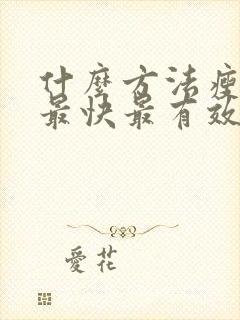 什麼方法瘦
最快最有效
愛花